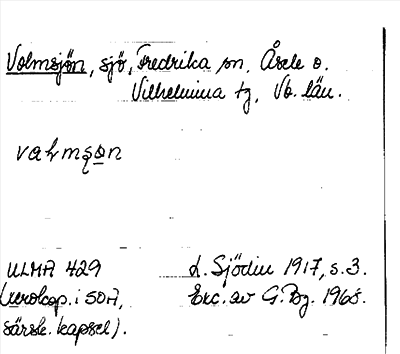 Volmsjön, sjö, Fredrika sn, Åsele o.
Vilhelmina tg, Vb. län.
ULMA 429
(xerokop. i SOA,
särsk. kapsel).
L. Sjödin 1917, s. 3.
Exc. av G. Bg. 1968.